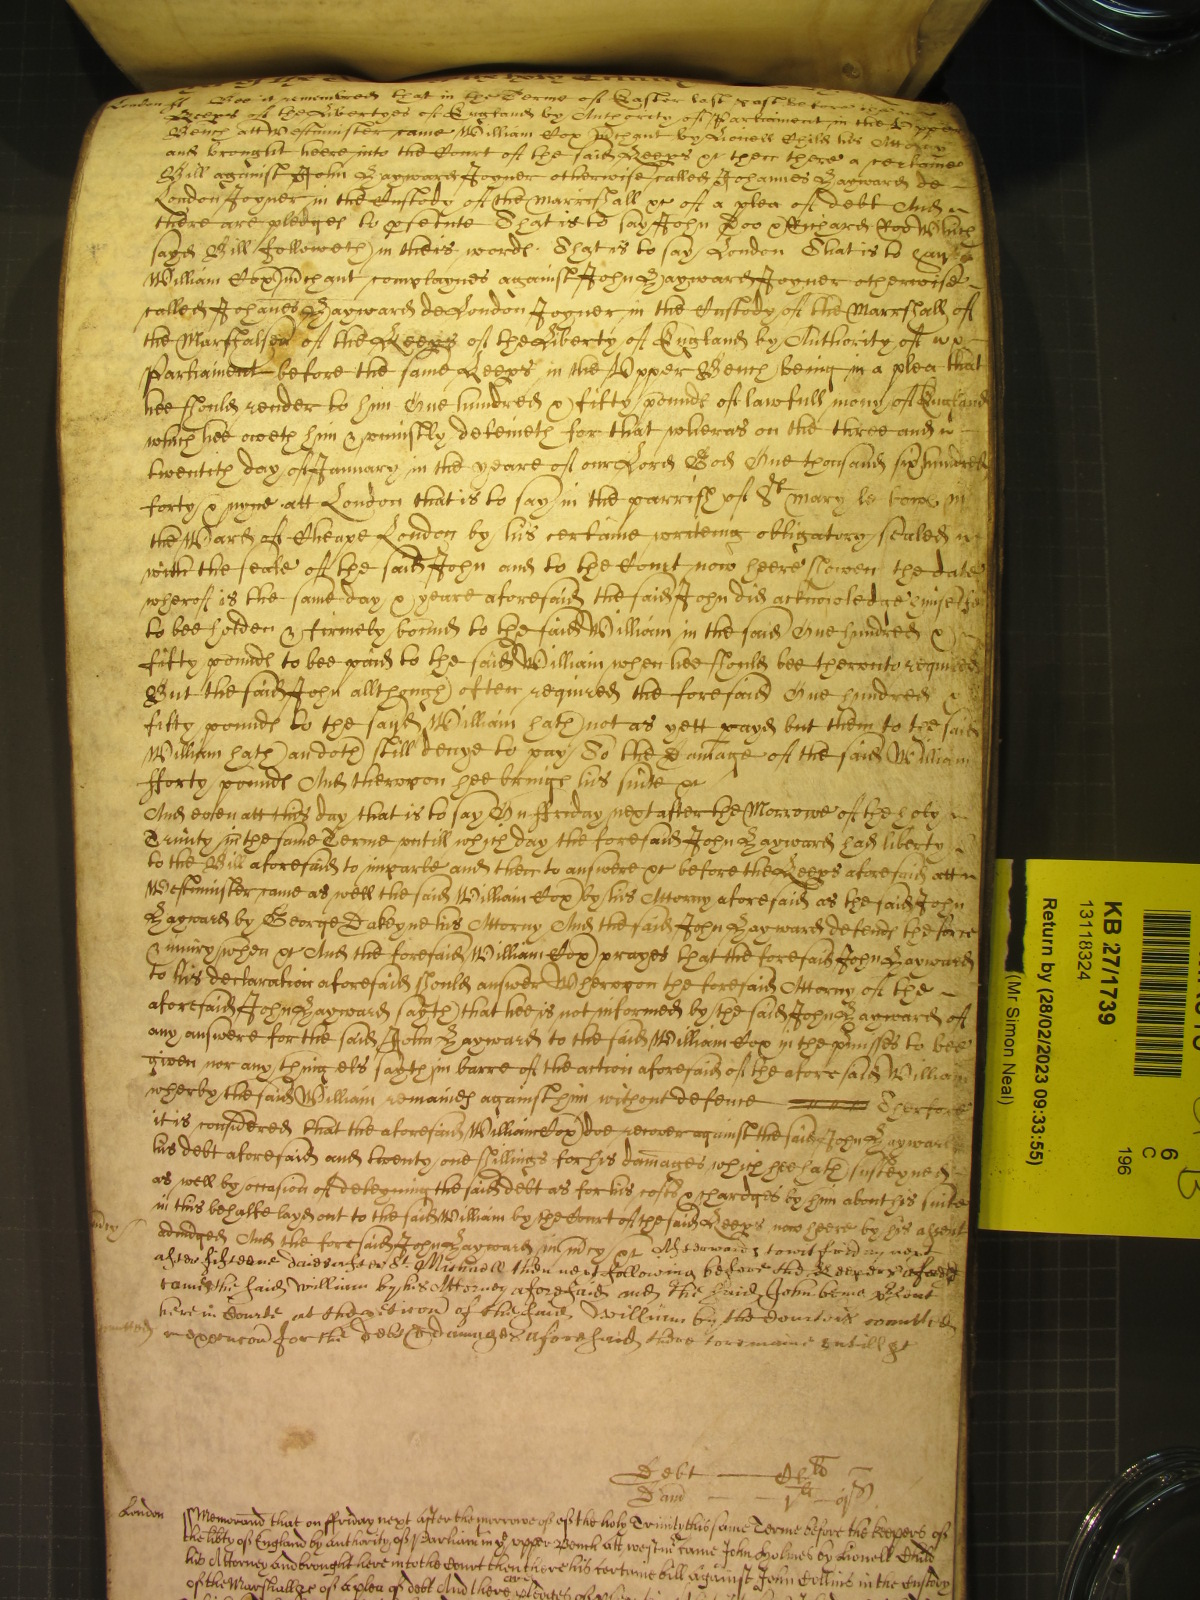 London ss Bee it remembred that in the Terme of Easter last past before the
Keeps of the Libertyes of England by Authority of Parliament in the Upper
Bench att Westminster came William Cox mchant by Lionell Child his Attorny
and brought heere into the Court of the said Keeps &c then there a certaine
Bill against John Hayward Joyner otherwise called Johannes Hayward de
London Joyner in the Custody of the Marrishall &c of a plea of debt And
there are pledges to psecute That is to say John Doo & Richard Roo Which
sayd Bill followeth in theis words. That is to say London That is to say
William Cox mchant complaynes against John Hayward Joyner otherwise
called Johannes Hayward de London Joyner in the Custody of the Marrshall of
the Marshalsea of the Keeps of the Liberty of England by Authority of
Parliament before the same Keeps in the Upper Bench being in a plea that
hee should render to him One hundred & fifty pounds of lawfull mony of England
which hee oweth him & uniustly deteineth for that wheras on the three and
twentith day of January in the yeare of our Lord God One thousand six hundred
forty & nyne att London that is to say in the parrish of St Mary le bow in
the Ward of Cheape London by his certaine writeing obligatory sealed
with the seale of the said John and to the Court now heere shewen the date
wherof is the same day & yeare aforesaid the said John did acknowledge himselfe
to bee holden & firmely bound to the said William in the said One hundred &
fifty pounds to bee paid to the said William when hee should bee therunto required
But the said John allthough often required the foresaid One hundred &
fifty pounds to the sayd William hath not as yett payd but them to the said
William hath and doth still denye to pay To the Damage of the said William
fforty pounds And therupon hee brings his suite &c
And even att this day that is to say On ffriday next after the Morrowe of the holy
Trinity in the same Terme untill which day the foresaid John Hayward had liberty
to the Bill aforesaid to imparle and then to answere &c before the Keeps aforesaid att
Westminster came as well the said William Cox by his Attorny aforesaid as the said John
Hayward by George Dakeyne his Attorny And the said John Hayward defends the force
& iniury when &c And the foresaid William Cox prayes that the foresaid John Hayward
to his declaration aforesaid should answer Wherupon the foresaid Attorny of the
aforesaid John Hayward sayth that hee is not informed by the said John Hayward of
any answere for the said John Hayward to the said William Cox in the pmisses to bee
given nor any thing els sayth in barre of the action aforesaid of the aforesaid William
wherby the said William remaines against him without defence Therfore
it is considered that the aforesaid William Cox doe recover against the said John Hayward
his debt aforesaid and twenty one shillings for his damages which hee hath susteyned
as well by occasion of deteyning the said debt as for his costs & chardges by him about his suite
in this behalfe layd out to the said William by the Court of the said Keeps now heere by his assent
adiudged And the foresaid John Hayward in mcy &c Afterwards to wit friday next
after fifteene daies after St Michaell then next following before the keepers aforesd
came the said William by his Attorney aforesaid and the said John beinge psent
here in Courte at the peticion of the said William by the Court is comitted
in execucon for the debt & damages aforesaid there to remaine untill &c
Debt CLli
Dam 1s
London Memorand that on ffriday next after the morrow of the holy Trinity this same Terme before the keepers of
the libty of England by authority of Parliam in ye upper Bench att westmr came John Holmes by Lionell Child
his Attorney and brought here into the Court then there his certaine bill against John Collins in the Custody
of the Marshall &c of a plea of debt And there are pledges of
KB 27/1739
13118324
Return by (28/02/2023 09:33:55)
(Mr Simon Neal)
6
C
196